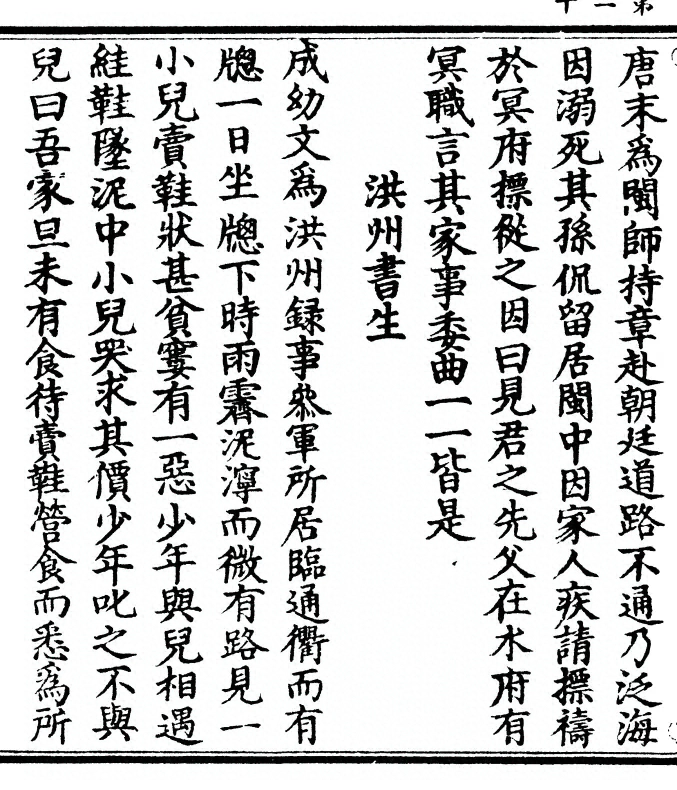 第二十
唐末爲閩師持章赴朝廷道路不通乃泛海
因溺死其孫侃留居閩中因家人疾請摽禱
於冥府摽從之因曰見君之先父在水府有
冥職言其家事委曲一一皆是
洪州書生
成幼文爲洪州録事叅軍所居臨通衢而有
牕一日坐牕下時雨霽泥濘而微有路見一
小兒賣鞋狀甚貧寠有一惡少年與兒相遇
絓鞋墜泥中小兒哭求其價少年叱之不與
兒曰吾家旦未有食待賣鞋營食而悉爲所